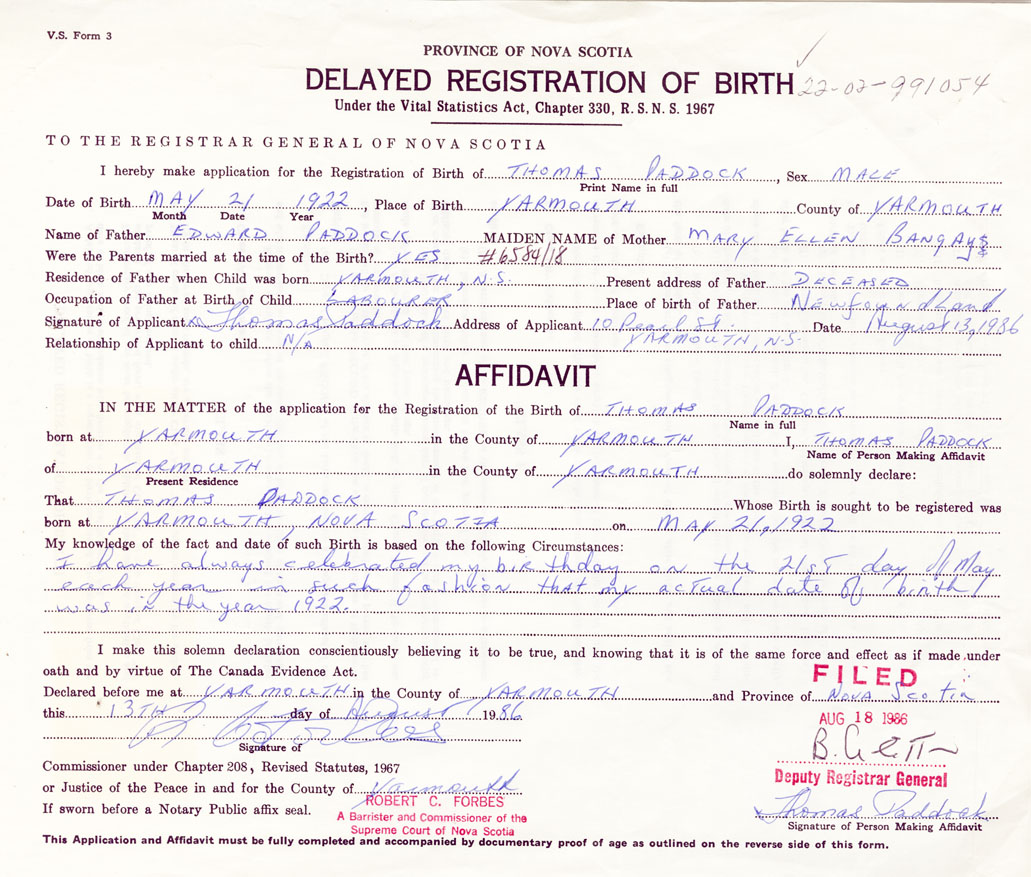 V.S. Form 3
PROVINCE OF NOVA SCOTIA
DELAYED REGISTRATION OF BIRTH 22-02-991054
Under the Vital Statistics Act, Chapter 330, R.S.N.S. 1967
TO THE REGISTRAR GENERAL OF NOVA SCOTIA
I hereby make application for the Registration of Birth of THOMAS PADDOCK, Sex MALE
Print Name in full
Date of Birth MAY 21 1922, Place of Birth YARMOUTH County of YARMOUTH
Month Date Year
Name of Father EDWARD PADDOCK MAIDEN NAME of Mother MARY ELLEN BANGAY
Were the Parents married at the time of the Birth? YES #6584/18
Residence of Father when Child was born YARMOUTH, N.S. Present address of Father DECEASED
Occupation of Father at Birth of Child LABOURER Place of birth of Father Newfoundland
Signature of Applicant x Thomas Paddock Address of Applicant 10 Pearl St. Date August 13, 1986
Relationship of Applicant to child N/A YARMOUTH, N.S.
AFFIDAVIT
IN THE MATTER of the application for the Registration of the Birth of THOMAS PADDOCK
Name in full
born at YARMOUTH in the County of YARMOUTH I, THOMAS PADDOCK
Name of Person Making Affidavit
of YARMOUTH in the County of YARMOUTH do solemnly declare:
Present Residence
That THOMAS PADDOCK Whose Birth is sought to be registered was
born at YARMOUTH, NOVA SCOTIA on MAY 21, 1922
My knowledge of the fact and date of such Birth is based on the following Circumstances:
I have always celebrated my birthday on the 21st day of May
each year in such fashion that my actual date of birth
was in the year 1922.
I make this solemn declaration conscientiously believing it to be true, and knowing that it is of the same force and effect as if made under
oath and by virtue of The Canada Evidence Act.
FILED
Declared before me at YARMOUTH in the County of YARMOUTH and Province of Nova Scotia
this 13TH day of August 1986
AUG 18 1986
Signature of
Commissioner under Chapter 208, Revised Statutes, 1967
Deputy Registrar General
or Justice of the Peace in and for the County of Yarmouth
ROBERT C. FORBES
If sworn before a Notary Public affix seal.
A Barrister and Commissioner of the
Supreme Court of Nova Scotia
x Thomas Paddock
Signature of Person Making Affidavit
This Application and Affidavit must be fully completed and accompanied by documentary proof of age as outlined on the reverse side of this form.